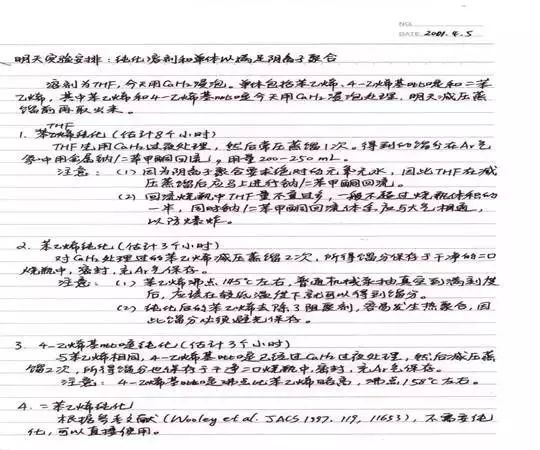 NO.
DATE 2001.4.5
明天实验安排：纯化溶剂和单体以满足阴离子聚合
溶剂为THF，今天用CaH₂浸泡。单体包括苯乙烯、4-乙烯基吡啶和二苯
乙烯，其中苯乙烯和4-乙烯基吡啶今天用CaH₂浸泡处理，明天减压蒸
馏前再取出来。
THF
1. 纯化（估计8个小时）
THF先用CaH₂过夜处理，然后常压蒸馏1次。得到的馏分在Ar气
氛中用金属钠/二苯甲酮回流，用量200-250mL。
注意：（1）因为阴离子聚合要求绝对的无氧无水，因此THF在减
压蒸馏后应马上进行钠/二苯甲酮回流。
（2）回流烧瓶中THF量不宜过多，一般不超过烧瓶体积的
一半，同时钠/二苯甲酮回流体系应与大气相通，
以防爆炸。
2. 苯乙烯纯化（估计3个小时）
对CaH₂处理过的苯乙烯减压蒸馏2次，所得馏分保存于干净的二口
烧瓶中，密封，充Ar气保存。
注意：（1）苯乙烯沸点145℃左右，普通机械泵抽真空到满刻度
后，应该在较低温度下就可以得到馏分。
（2）纯化后的苯乙烯去除了阻聚剂，容易发生热聚合，因
此馏分必须避光保存。
3. 4-乙烯基吡啶纯化（估计3个小时）
与苯乙烯相同，4-乙烯基吡啶已经过CaH₂过夜处理，然后减压蒸
馏2次，所得馏分也保存于干净二口烧瓶中，密封，充Ar气保存。
注意：4-乙烯基吡啶沸点比苯乙烯略高，沸点158℃左右。
4. 二苯乙烯纯化
根据参考文献（Wooley et al. JACS 1997, 119, 11653），不需要纯
化，可以直接使用。